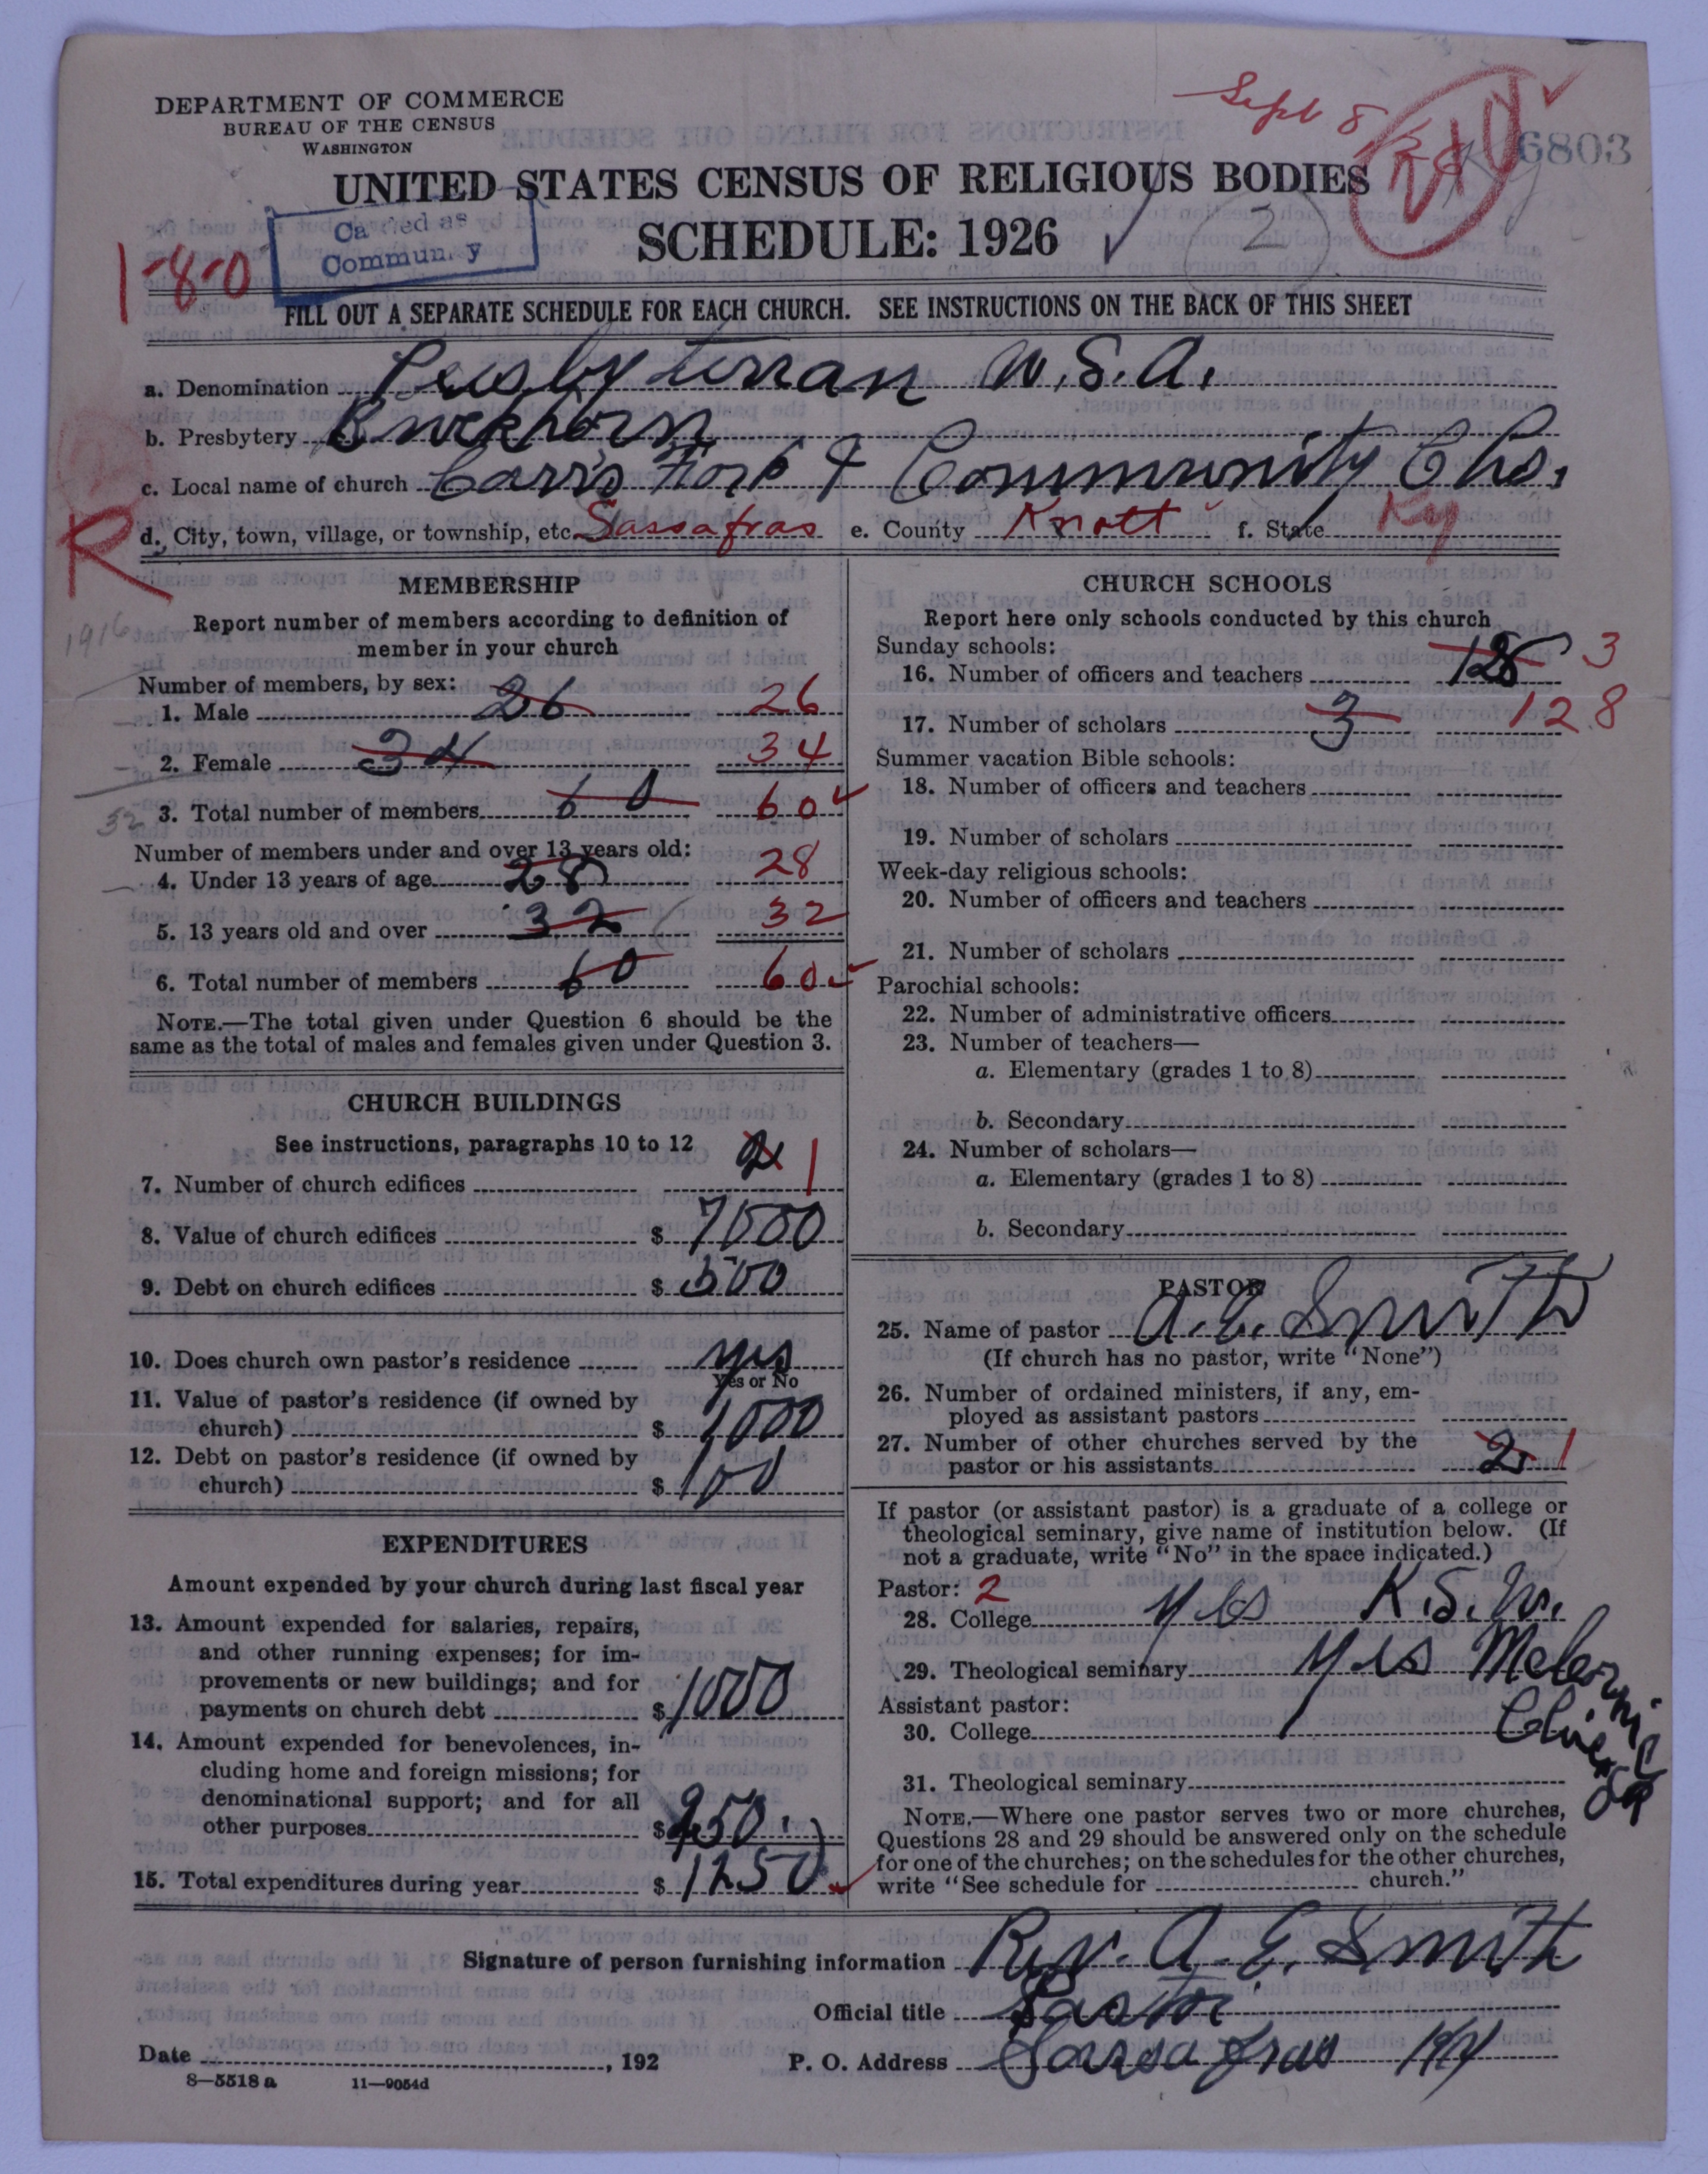 DEPARTMENT OF COMMERCE
BUREAU OF THE CENSUS
WASHINGTON
Sept 8
6803
UNITED STATES CENSUS OF RELIGIOUS BODIES
SCHEDULE: 1926
2
1-8-0
FILL OUT A SEPARATE SCHEDULE FOR EACH CHURCH. SEE INSTRUCTIONS ON THE BACK OF THIS SHEET
a. Denomination Presbyterran U.S.A.
b. Presbytery Buckhorn
c. Local name of church Carr's Fork & Community Chs.
R
d. City, town, village, or township, etc. Sassafras e. County Knott f. State Ky
MEMBERSHIP
Report number of members according to definition of
member in your church
1916
Number of members, by sex:
1. Male 26 26
2. Female 34 34
32
3. Total number of members 60 60
Number of members under and over 13 years old:
4. Under 13 years of age 28 28
5. 13 years old and over 32 32
6. Total number of members 60 60
NOTE.—The total given under Question 6 should be the
same as the total of males and females given under Question 3.
CHURCH BUILDINGS
See instructions, paragraphs 10 to 12
7. Number of church edifices 2 1
8. Value of church edifices $ 7000
9. Debt on church edifices $ 500
10. Does church own pastor's residence yes
Yes or No
11. Value of pastor's residence (if owned by
church) $ 1000
12. Debt on pastor's residence (if owned by
church) $ 100
EXPENDITURES
Amount expended by your church during last fiscal year
13. Amount expended for salaries, repairs,
and other running expenses; for im-
provements or new buildings; and for
payments on church debt $ 1000
14. Amount expended for benevolences, in-
cluding home and foreign missions; for
denominational support; and for all
other purposes $ 250
15. Total expenditures during year $ 1250
CHURCH SCHOOLS
Report here only schools conducted by this church
Sunday schools:
16. Number of officers and teachers 128 3
17. Number of scholars 3 128
Summer vacation Bible schools:
18. Number of officers and teachers
19. Number of scholars
Week-day religious schools:
20. Number of officers and teachers
21. Number of scholars
Parochial schools:
22. Number of administrative officers
23. Number of teachers—
a. Elementary (grades 1 to 8)
b. Secondary
24. Number of scholars—
a. Elementary (grades 1 to 8)
b. Secondary
PASTOR
25. Name of pastor A. E. Smith
(If church has no pastor, write "None")
26. Number of ordained ministers, if any, em-
ployed as assistant pastors
27. Number of other churches served by the
pastor or his assistants 2 1
If pastor (or assistant pastor) is a graduate of a college or
theological seminary, give name of institution below. (If
not a graduate, write "No" in the space indicated.)
Pastor: 2
28. College yes K.S.
29. Theological seminary yes
Assistant pastor:
30. College
31. Theological seminary
NOTE.—Where one pastor serves two or more churches,
Questions 28 and 29 should be answered only on the schedule
for one of the churches; on the schedules for the other churches,
write "See schedule for church."
Signature of person furnishing information Rev. A. E. Smith
Official title Pastor
Date , 192 P. O. Address Sassafras Ky
8—5518 a 11—9054d